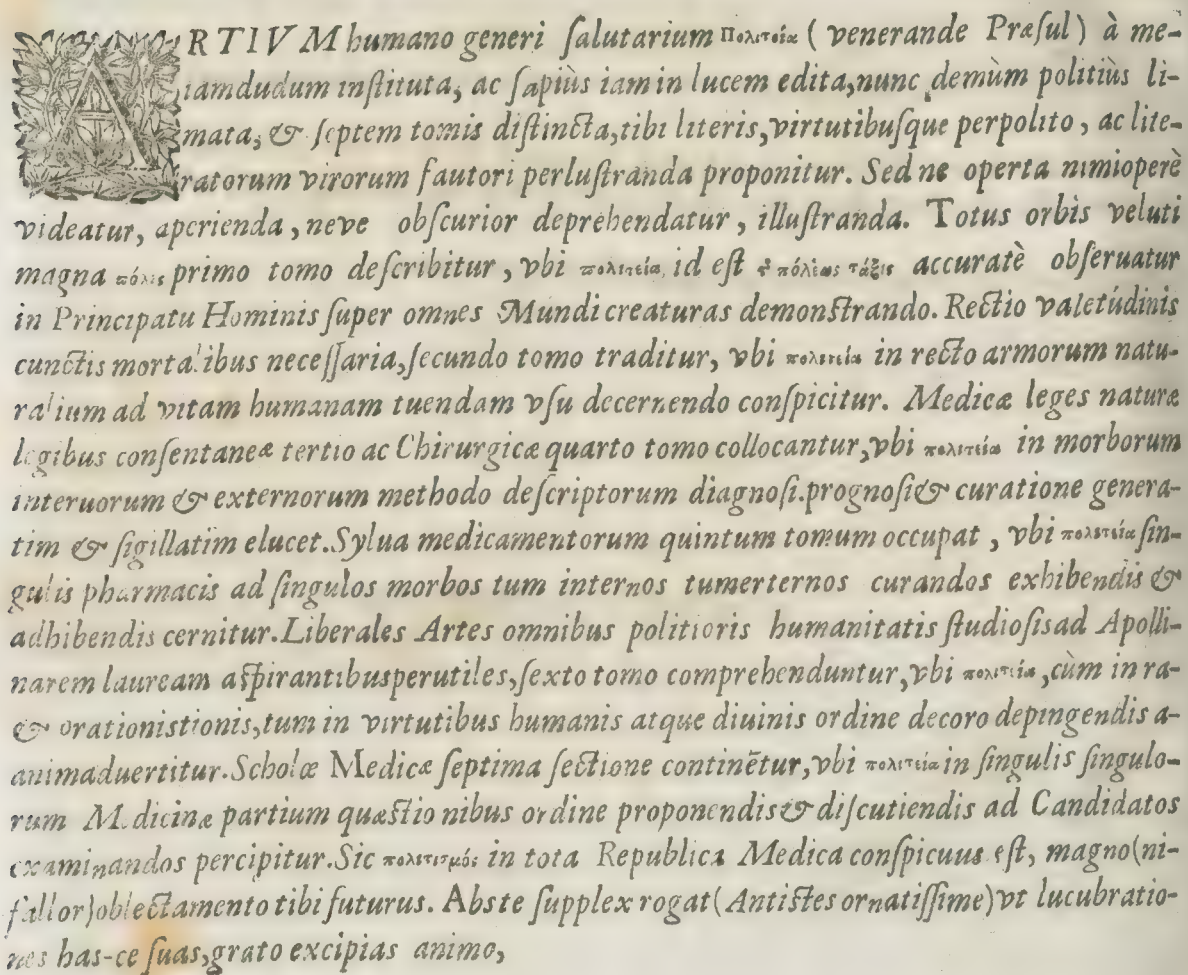 ARTIVM humano generi ſalutarium Πολιτεία (venerande Præſul) à me-
iamdudum inſtituta, ac ſæpiùs iam in lucem edita, nunc demùm politiùs li-
mata, & ſeptem tomis diſtincta, tibi literis, virtutibuſque perpolito, ac lite-
ratorum virorum fautori perluſtranda proponitur. Sed ne operta nimioperè
videatur, aperienda, neve obſcurior deprehendatur, illuſtranda. Totus orbis veluti
magna πόλις primo tomo deſcribitur, vbi πολιτεία, id eſt πόλεως τάξις accuratè obſeruatur
in Principatu Hominis ſuper omnes Mundi creaturas demonſtrando. Rectio valetúdinis
cunctis mortalibus neceſſaria, ſecundo tomo traditur, vbi πολιτεία in recto armorum natu-
ralium ad vitam humanam tuendam vſu decernendo conſpicitur. Medicæ leges naturæ
legibus conſentaneæ tertio ac Chirurgicæ quarto tomo collocantur, vbi πολιτεία in morborum
interuorum & externorum methodo deſcriptorum diagnoſi.prognoſi& curatione genera-
tim & ſigillatim elucet. Sylua medicamentorum quintum tomum occupat, vbi πολιτεία ſin-
gulis pharmacis ad ſingulos morbos tum internos tumerternos curandos exhibendis &
adhibendis cernitur. Liberales Artes omnibus politioris humanitatis ſtudioſisad Apolli-
narem lauream aſpirantibusperutiles, ſexto tomo comprehenduntur, vbi πολιτεία, cùm in ra-
& orationistionis, tum in virtutibus humanis atque diuinis ordine decoro depingendis a-
animaduertitur. Scholæ Medicæ ſeptima ſectione continētur, vbi πολιτεία in ſingulis ſingulo-
rum Medicinæ partium quæſtio nibus ordine proponendis& diſcutiendis ad Candidatos
examinandos percipitur. Sic πολιτισμός in tota Republica Medica conſpicuus eſt, magno (ni-
fallor) oblectamento tibi futurus. Abste ſupplex rogat (Antiſtes ornatiſſime) vt lucubratio-
nes has-ce ſuas, grato excipias animo,